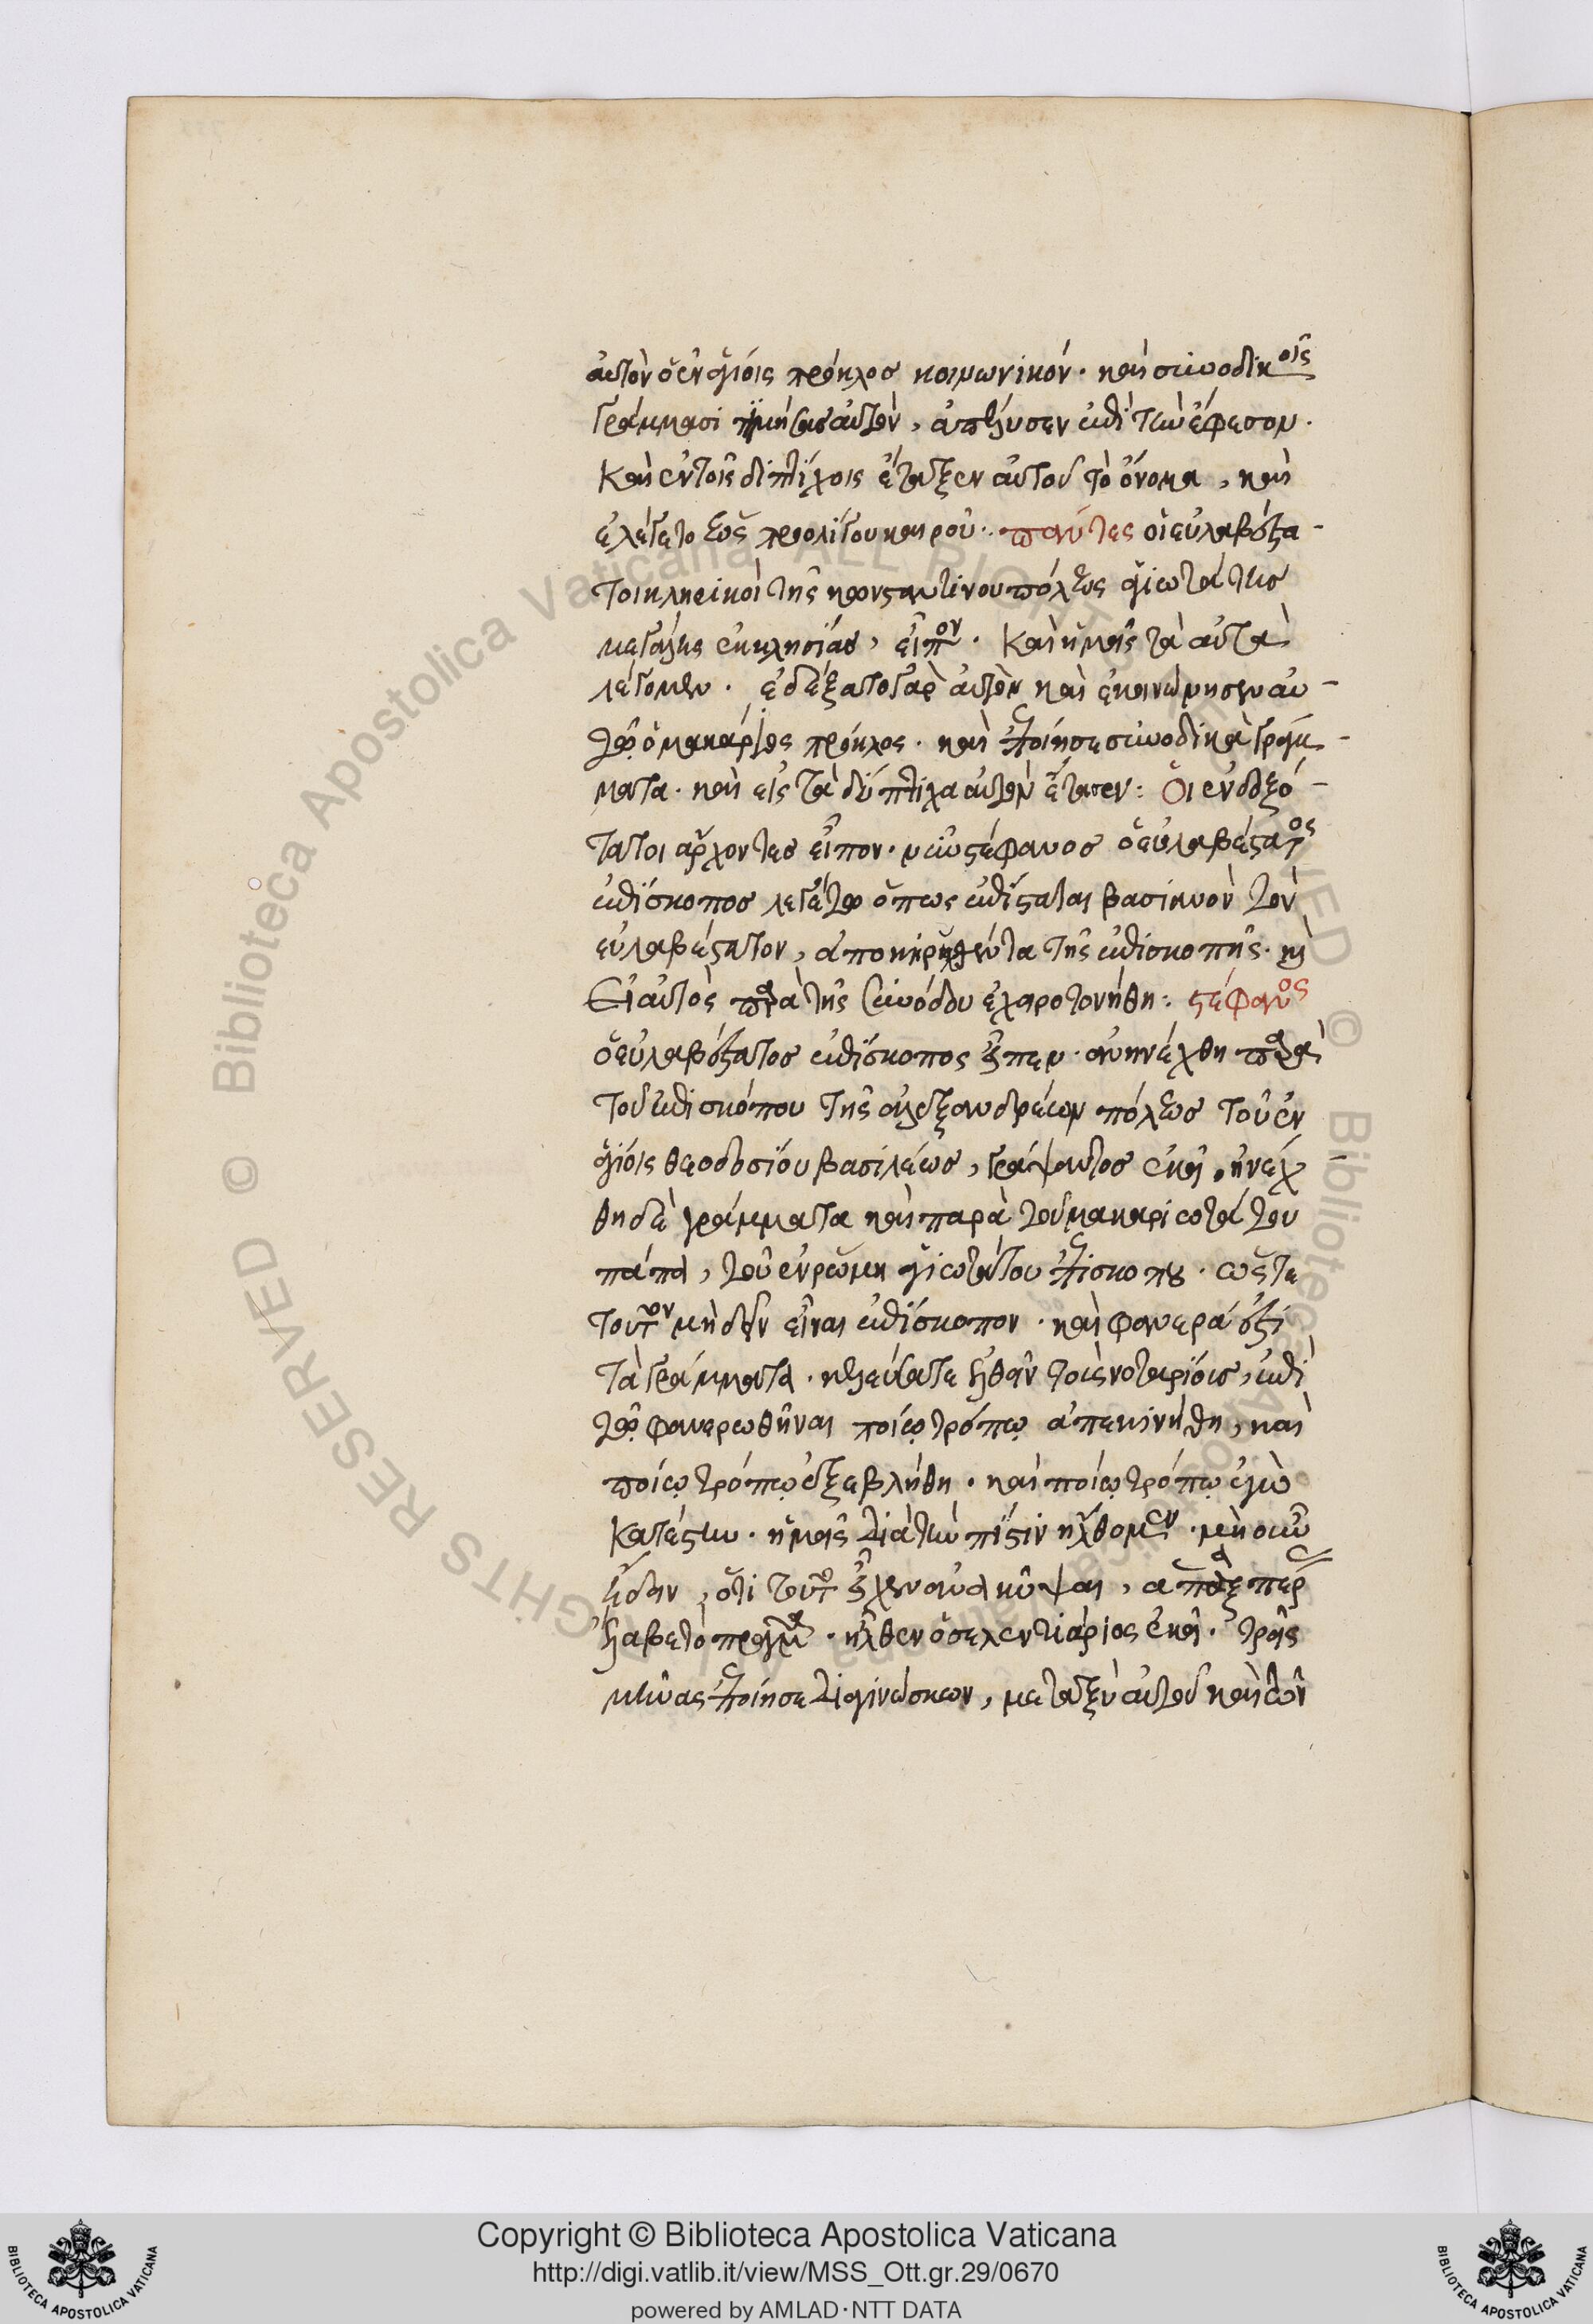 αὐτὸν ὁ ἐν ἁγίοις πρόκλος κοινωνικόν. καὶ συνοδικοῖς
γράμμασι τιμήσας αὐτὸν, ἀπέλυσεν ἐπὶ τὴν ἔφεσον.
Καὶ ἐν τοῖς διπτύχοις ἔταξεν αὐτοῦ τὸ ὄνομα, καὶ
ἐλέγετο ἕως πρὸ ὀλίγου καιροῦ. πάντες οἱ εὐλαβέστα-
τοι κληρικοὶ τῆς κωνσταντινουπόλεως ἁγιωτάτης
μεγάλης ἐκκλησίας, εἶπον. Καὶ ἡμεῖς τὰ αὐτὰ
λέγομεν. ἐδέξατο γὰρ αὐτὸν καὶ ἐκοινώνησεν αὐ-
τῷ ὁ μακάριος πρόκλος. καὶ ἐποίησε συνοδικὰ γράμ-
ματα. καὶ εἰς τὰ δίπτυχα αὐτὸν ἔταξεν: Οἱ ἐνδοξό-
τατοι ἄρχοντες εἶπον. νῦν στέφανος ὁ εὐλαβέστατος
ἐπίσκοπος λεγέτω ὅπως ἐπίσταται βασιανὸν τὸν
εὐλαβέστατον, ἀποκηρυχθέντα τῆς ἐπισκοπῆς. καὶ
Εἰ αὐτὸς παρὰ τῆς συνόδου ἐχειροτονήθη: στέφανος
ὁ εὐλαβέστατος ἐπίσκοπος εἶπεν. ἀνηνέχθη παρὰ
τοῦ ἐπισκόπου τῆς ἀλεξανδρέων πόλεως τοῦ ἐν
ἁγίοις θεοδοσίου βασιλέως, γράψαντος ἐκεῖ. ἠνέχ-
θη δὲ γράμματα καὶ παρὰ τοῦ μακαριωτάτου
πάπα, τοῦ ἐν ῥώμη ἁγιωτάτου ἐπισκόπου. ὥστε
τοῦτον μὴ δεῖν εἶναι ἐπίσκοπον. καὶ φανερά ἐστι
τὰ γράμματα. κελεύσατε ἐλθεῖν τοῖς νοταρίοις, ἐπὶ
τῷ φανερωθῆναι ποίῳ τρόπῳ ἀπεκινήθη, καὶ
ποίῳ τρόπῳ ἐξεβλήθη. καὶ ποίῳ τρόπῳ ἐγὼ
κατέστην. ἡμεῖς διὰ τὴν πίστιν ἤχθομεν. μὴ οὖν
τοῦτο εἶχεν ἀνακύψαι, ἅπαξ περ
ἔλαβε τὸ πρᾶγμα. ἦλθεν ὁ σελεντιάριος ἐκεῖ. τρεῖς
μῆνας ἐποίησε διαγινώσκων, μεταξὺ αὐτοῦ καὶ τῶν
Copyright © Biblioteca Apostolica Vaticana
http://digi.vatlib.it/view/MSS_Ott.gr.29/0670
powered by AMLAD·NTT DATA